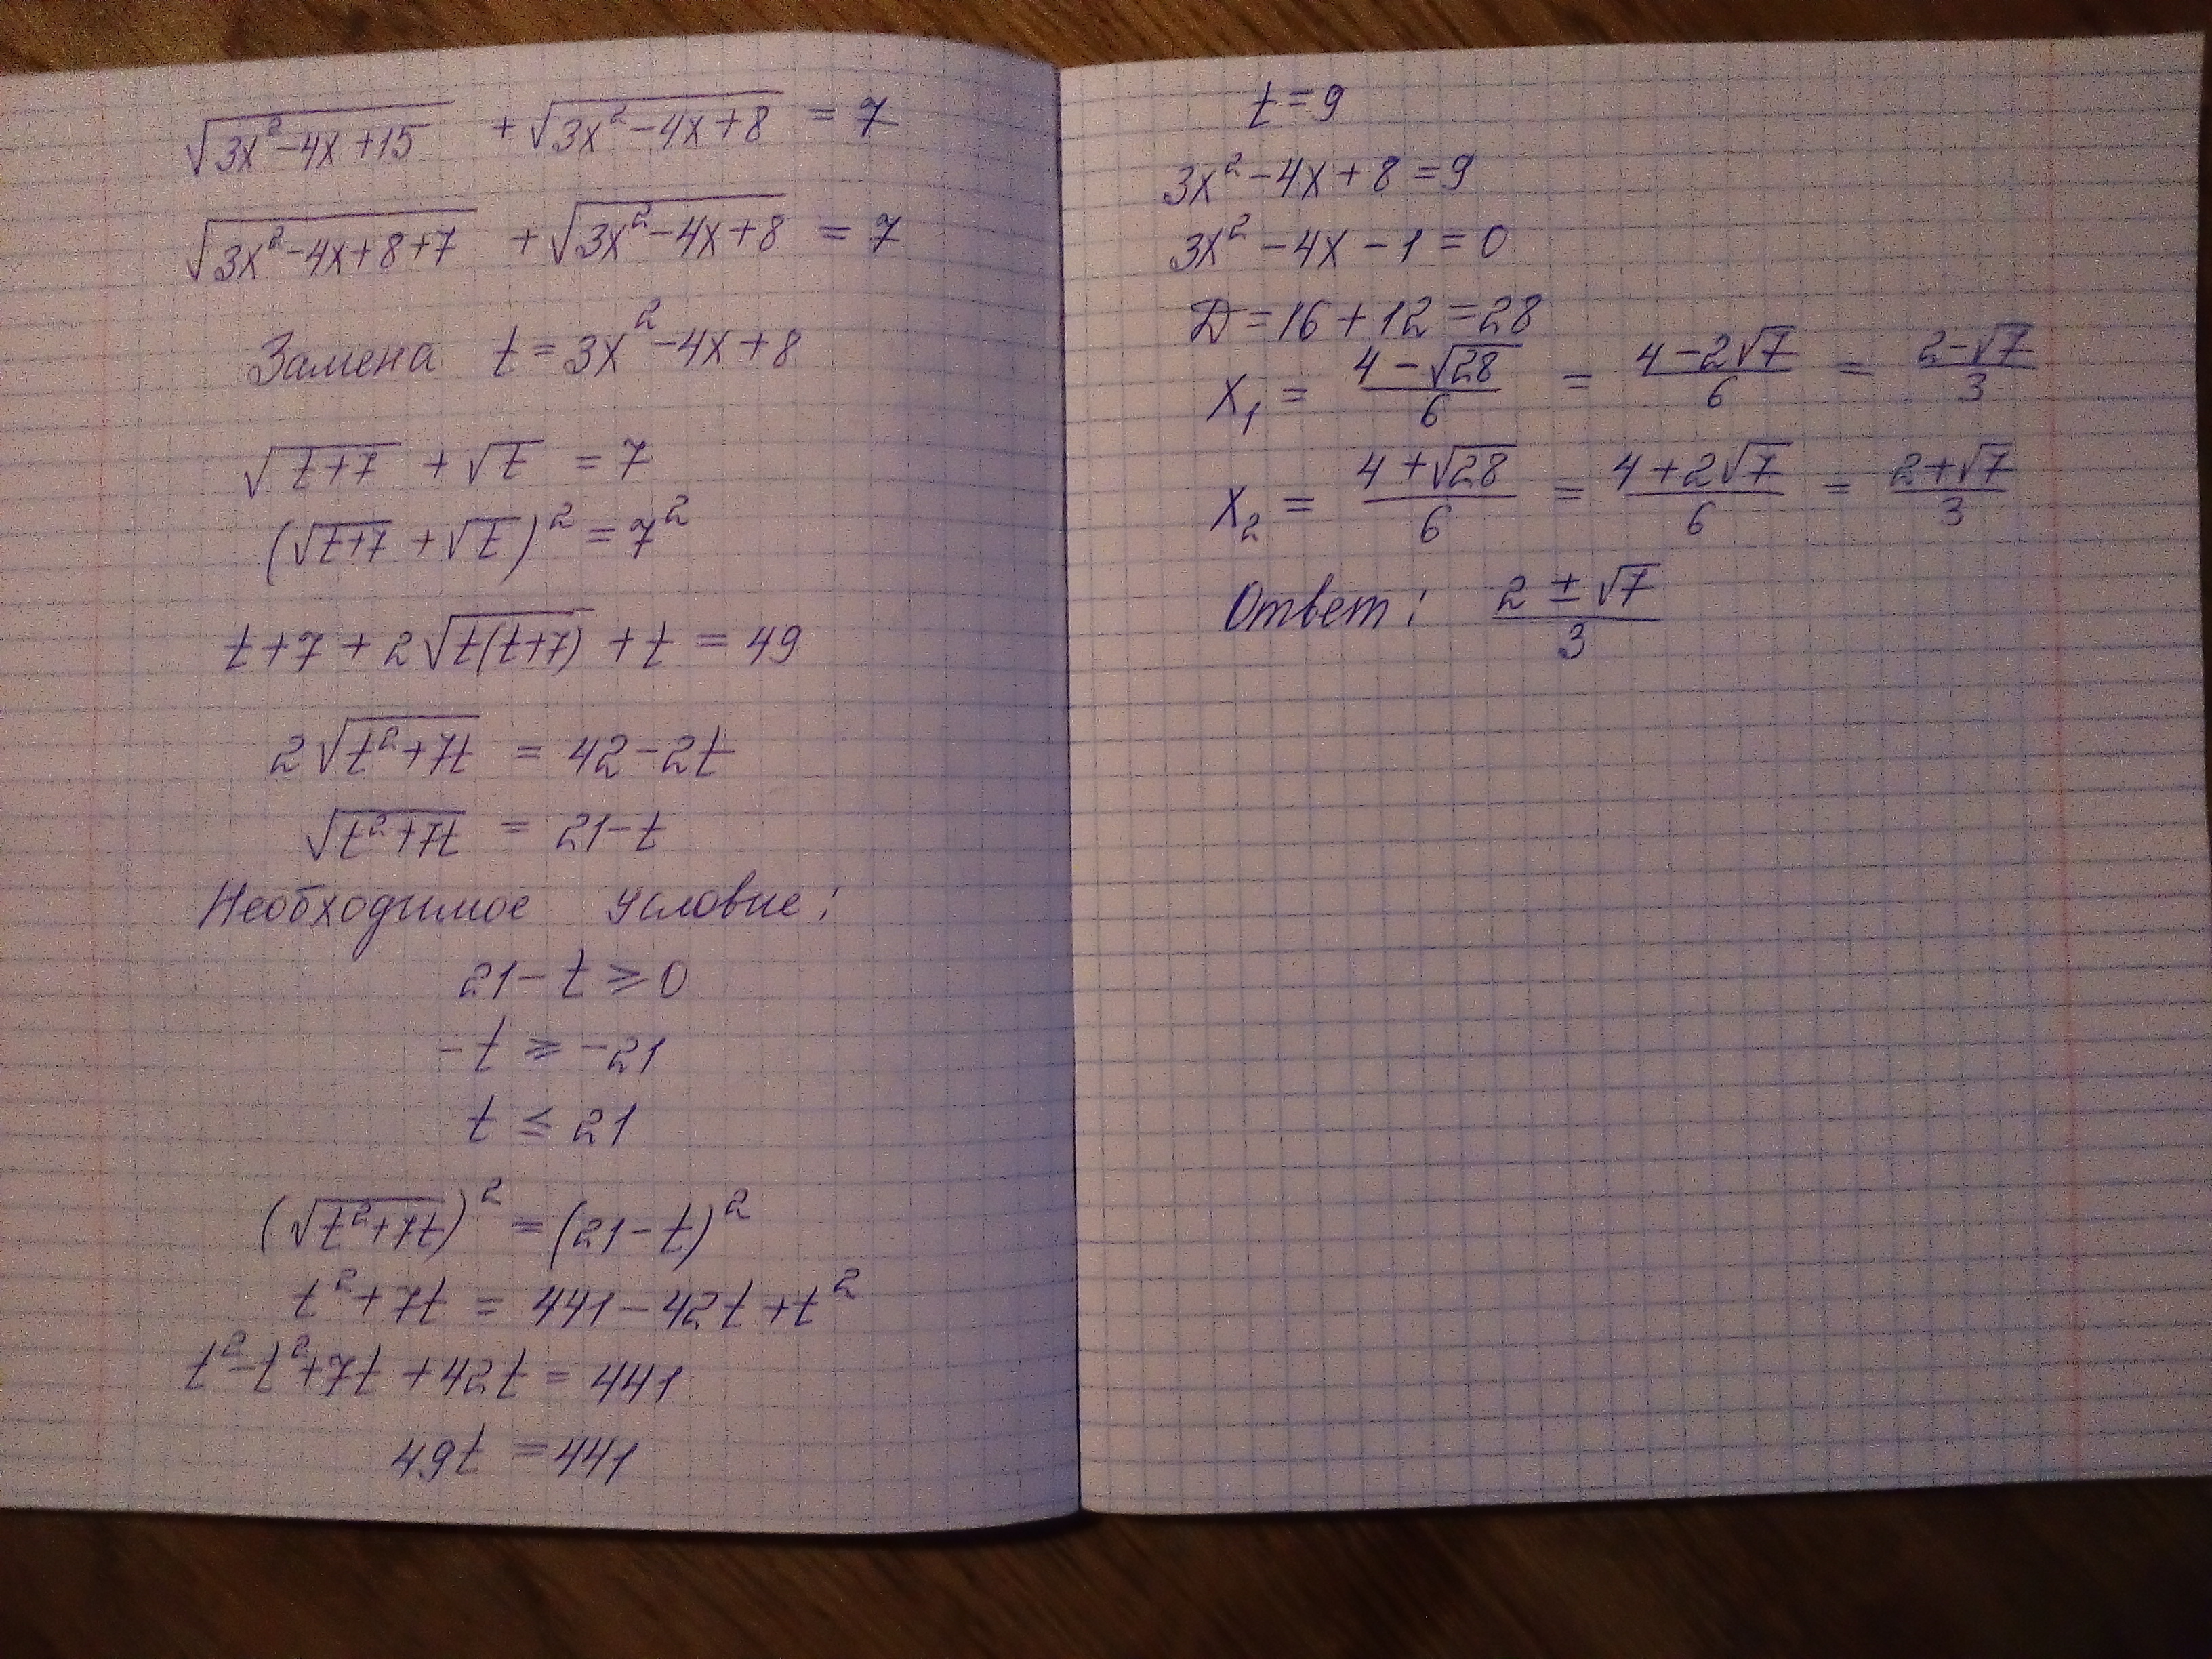 √(3x²-4x+15) + √(3x²-4x+8) = 7
√(3x²-4x+8+7) + √(3x²-4x+8) = 7
Замена t = 3x²-4x+8
√(t+7) + √t = 7
(√(t+7) + √t)² = 7²
t+7+2√(t(t+7)) + t = 49
2√(t²+7t) = 42-2t
√(t²+7t) = 21-t
Необходимое условие:
21-t ≥ 0
-t ≥ -21
t ≤ 21
(√(t²+7t))² = (21-t)²
t²+7t = 441-42t+t²
t²-t²+7t+42t = 441
49t = 441
t = 9
3x²-4x+8 = 9
3x²-4x-1 = 0
D = 16+12 = 28
x₁ = (4-√28)/6 = (4-2√7)/6 = (2-√7)/3
x₂ = (4+√28)/6 = (4+2√7)/6 = (2+√7)/3
Ответ: (2±√7)/3